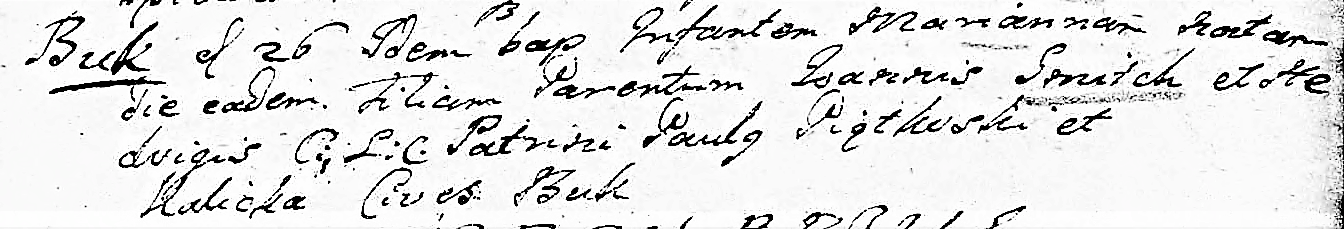 Buk d 26 Idem bap Infantem Mariannam natam
die eadem. Filiam Parentum Ioannis Smitch et He
dvigis C, L: C. Patrini Paulg Piątkoski et
Halicka Cives Buk